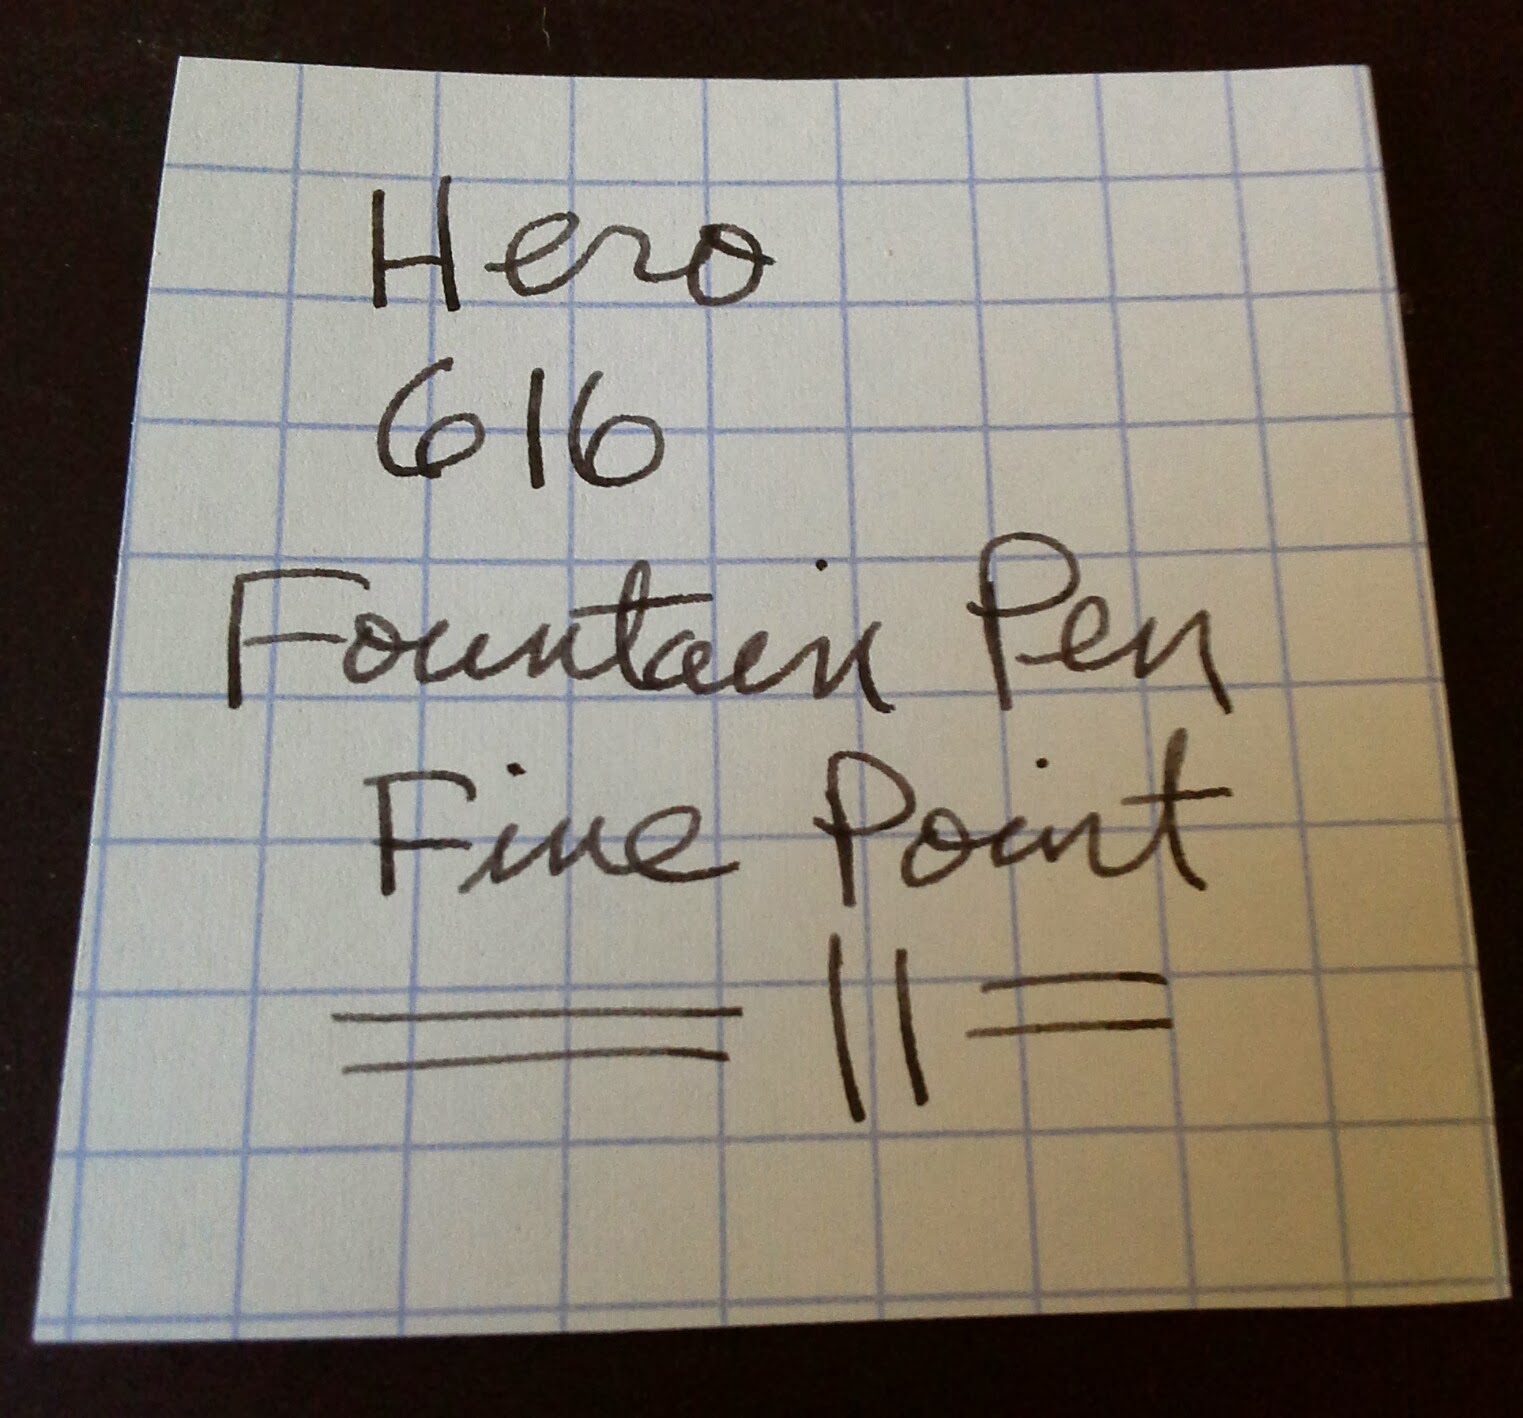 Hero
616
Fountain Pen
Fine Point